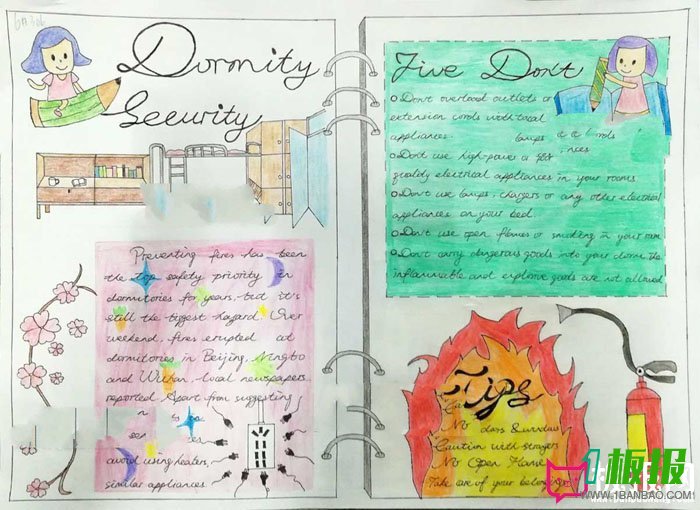 Dormity
Security
Preventing fires has been
the top safety priority in
dormitories for years, but it's
still the biggest hazard. Over
weekend, fires erupted at
dormitories in Beijing, Ningbo
and Wuhan, local newspapers
reported. Apart from suggesting
avoid using heaters,
similar appliances
Five Don't
Don't overload outlets or
extension cords with total
appliances.
Don't use high-power or
quality electrical appliances in your rooms
Don't use lamps, chargers or any other electrical
appliances on your bed.
Don't use open flames or smoking in your room
Don't carry dangerous goods into your dorm. The
inflammable and explosive goods are not allowed
Tips
No doors & windows
Caution with strangers
No Open Flame
Take care of your belongings
1板报
WWW.1BANBAO.COM